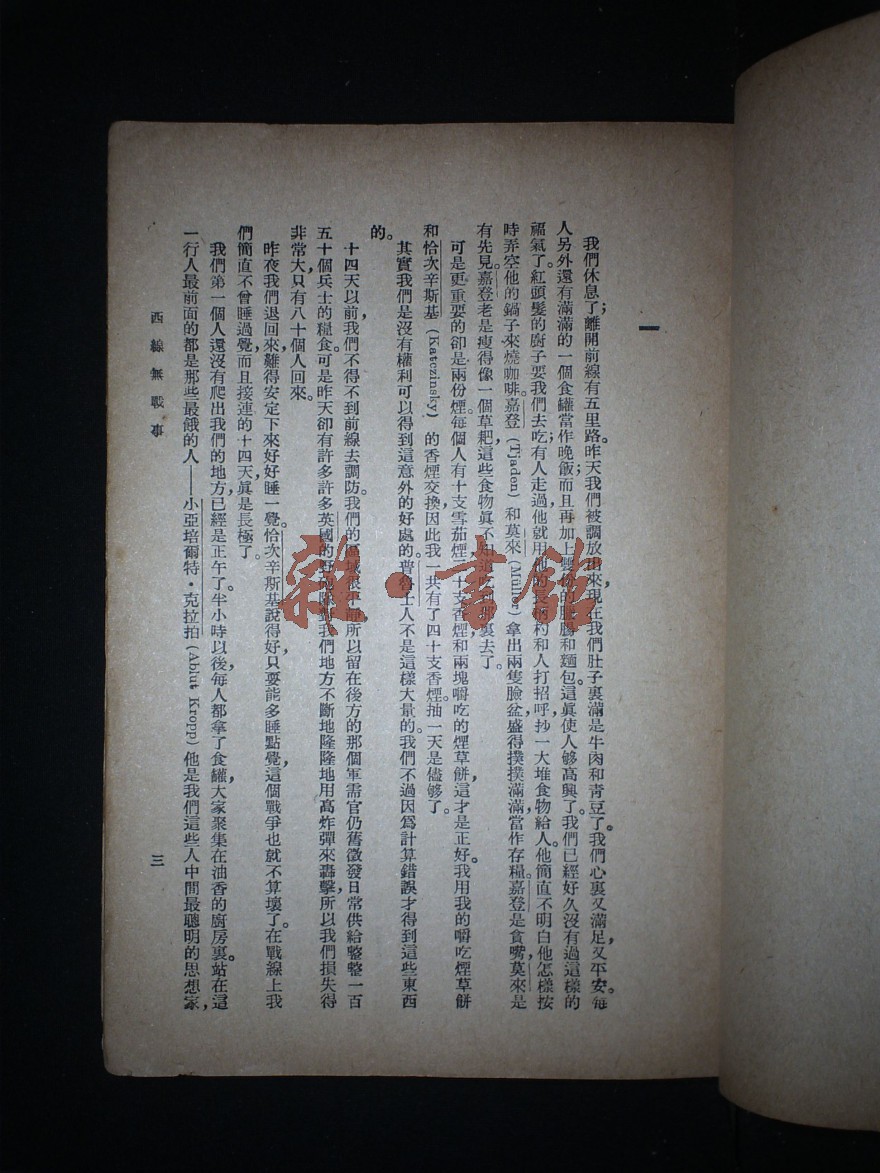 一
我們休息了；離開前線有五里路。昨天我們被調放出來，現在我們肚子裏滿是牛肉和青豆了。我們心裏又滿足，又平安。每
人另外還有滿滿的一個食罐當作晚飯；而且再加上雙份的臘腸和麵包。這真使人够高興了。我們已經好久沒有過這樣的
福氣了。紅頭髮的廚子要我們去吃；有人走過，他就用他的長柄杓和人打招呼，抄一大堆食物給人。他簡直不明白他怎樣按
時弄空他的鍋子來燒咖啡。嘉登 (Tjaden) 和莫來 (Müller) 拿出兩隻臉盆，盛得撲撲滿滿，當作存糧。嘉登是貪嘴，莫來是
有先見。嘉登老是瘦得像一個草耙，這些食物真不知道吃到那裏去了。
可是更重要的卻是兩份煙。每個人有十支雪茄煙，二十支香煙和兩塊嚼吃的煙草餅，這才是正好。我用我的嚼吃煙草餅
和恰次辛斯基 (Katczinsky) 的香煙交換，因此我一共有了四十支香煙。抽一天是儘够了。
其實我們是沒有權利可以得到這意外的好處的。普魯士人不是這樣大量的。我們不過因爲計算錯誤才得到這些東西
的。
十四天以前，我們不得不到前線去調防。我們的區域很平靜，所以留在後方的那個軍需官仍舊徵發日常供給整整一百
五十個兵士的糧食。可是昨天卻有許多許多英國的野砲隊對我們地方不斷地隆隆地用高炸彈來轟擊，所以我們損失得
非常大，只有八十個人回來。
昨夜我們退回來，難得安定下來好好睡一覺。恰次辛斯基說得好，只要能多睡點覺，這個戰爭也就不算壞了。在戰線上我
們簡直不曾睡過覺，而且接連的十四天，真是長極了。
我們第一個人還沒有爬出我們的地方，已經是正午了。半小時以後，每人都拿了食罐，大家聚集在油香的廚房裏。站在這
一行人最前面的都是那些最餓的人——小亞培爾特·克拉拍 (Ablut Kropp) 他是我們這些人中間最聰明的思想家，
西線無戰事
三
雜·書館